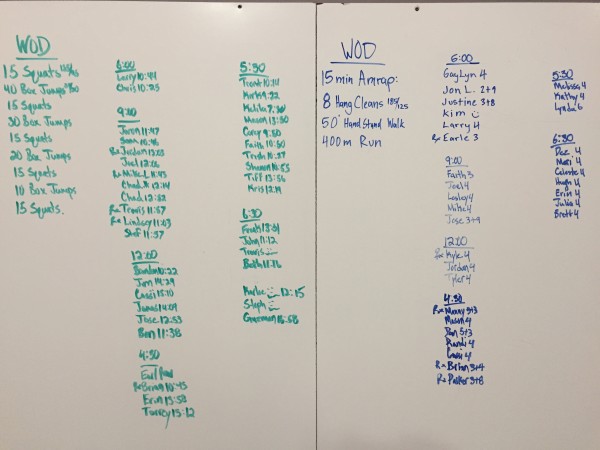 WOD
15 Squats
40 Box Jumps
15 Squats
30 Box Jumps
15 Squats
20 Box Jumps
15 Squats
10 Box Jumps
15 Squats.
6:00
Larry 10:44
Chris 10:25
9:00
Jaron 11:47
Rx Jordan 13:03
Joel 12:06
Rx Mike L 11:43
Chad K 12:14
Chad 12:52
Rx Travis 11:57
Rx Lindsey 11:03
Stef 11:57
12:00
Brandon 10:22
Jen 14:29
Cassi 15:10
James 14:09
Jose 12:53
Ben 11:38
4:30
Rx Brian 10:45
Erin 13:58
Turkey 15:12
5:30
Trent 10:14
Kirk 9:22
Mason 13:50
Corey 9:50
Faith 10:50
Trish 10:57
Shannon 10:55
Tiff 13:56
Kris 12:19
6:30
John 11:12
Travis
Beth 11:16
Karlee 12:15
Steph
WOD
15 min Amrap:
8 Hang Cleans 185/125
50' Hand Stand Walk
400m Run
6:00
GayLyn 4
Jon L. 2+9
Justine 3+8
Kim
Larry 4
Rx Earle 3
9:00
Faith 3
Joel 4
Lesley 4
Mike 4
Jose 3+9
12:00
Rx Kyle 4
Jordan 4
Tyler 4
4:30
Rx Manny 3+3
Mason 4
Dan 3+3
Randi 4
Corey 4
Rx Brian 3+4
Rx Parker 3+8
5:30
Melissa 4
Kathy 4
Lynda 6
6:30
Dez 4
Mari 4
Celeste 4
Hugh 4
Erin 4
Julia 4
Brett 4